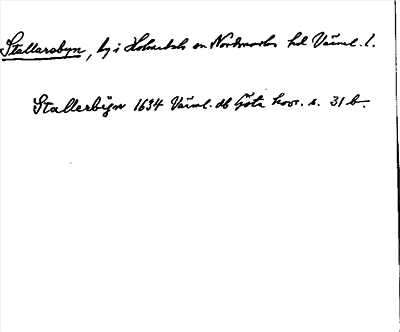 Stallarsbyn, by i Holmedals sn Nordmarks hd Värml. l.
Stallerbÿn 1634 Värml. db Göta hovr. s. 31 b.